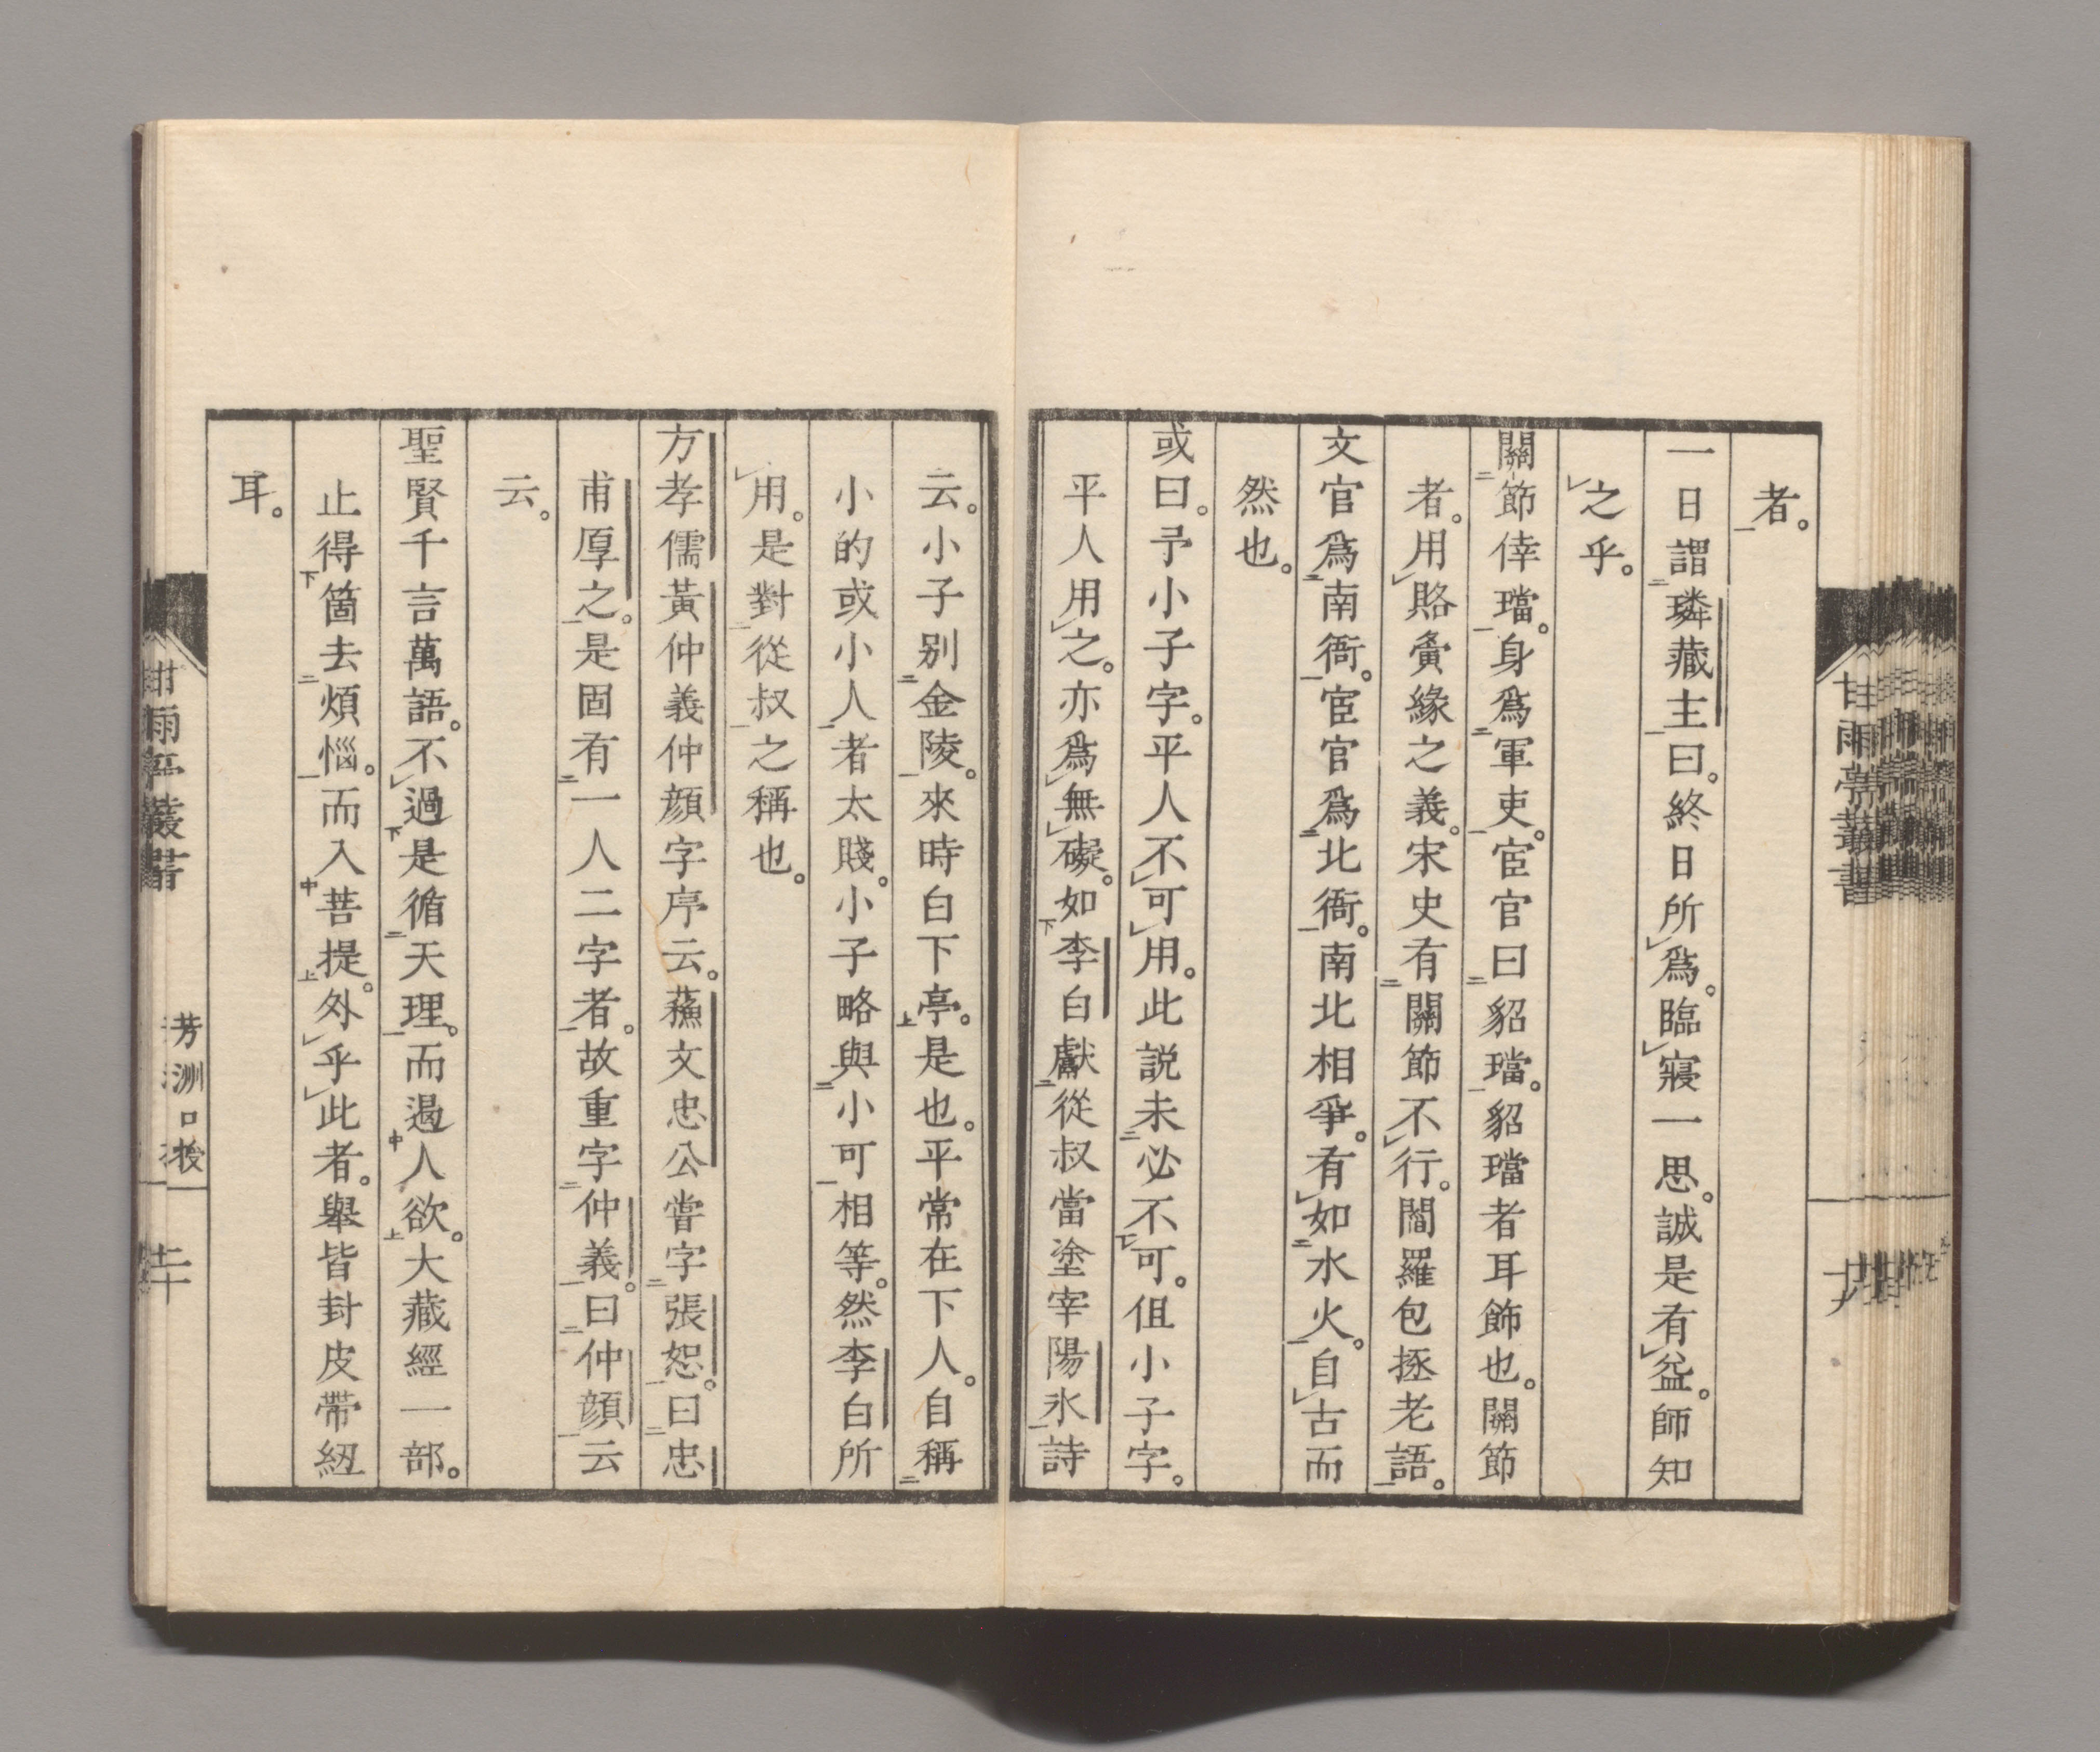 者。
一日謂璘藏主曰。終日所爲。臨寢一思。誠是有益。師知
之乎。
關節倖璫。身爲軍吏。宦官曰貂璫。貂璫者耳飾也。關節
者。用賂夤緣之義。宋史有關節不行。閻羅包拯老語。
文官爲南衙。宦官爲北衙。南北相爭。有如水火。自古而
然也。
或曰。予小子字。平人不可用。此説未必不可。伹小子字。
平人用之。亦爲無礙。如李白獻從叔當塗宰陽氷詩
云。小子別金陵。來時白下亭。是也。平常在下人。自稱
小的或小人者太賤。小子略與小可相等。然李白所
用。是對從叔之稱也。
方孝儒黃仲義仲顔字序云。蘓文忠公嘗字張恕。曰忠
甫厚之。是固有一人二字者。故重字仲義。曰仲顔云
云。
聖賢千言萬語。不過是循天理。而遏人欲。大藏經一部。
止得箇去煩惱。而入菩提。外乎此者。舉皆封皮帶紐
耳。
甘雨亭叢書
芳洲口授